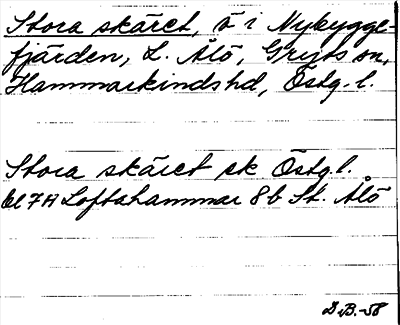 Stora skäret, ö i Nybygge-
fjärden, L. Ålö, Gryts sn,
Hammarkinds hd, Östg. l.
Stora skäret sk Östg. l.
7H Loftahammar 8b St. Ålö
B.-58